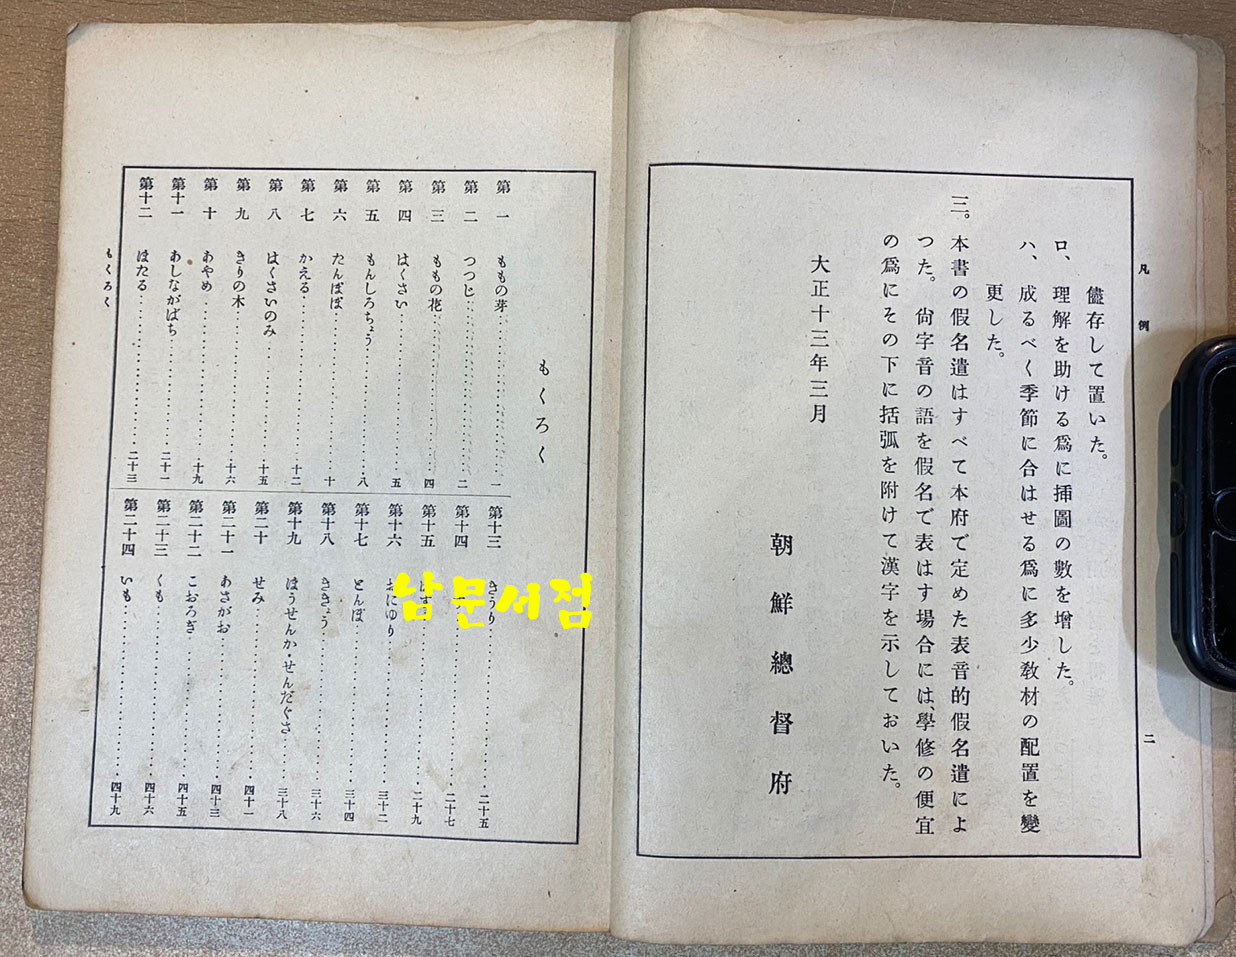 凡例
二
儘存して置いた。
ロ、理解を助ける爲に挿圖の數を增した。
ハ、成るべく季節に合はせる爲に多少敎材の配置を變
更した。
三。本書の假名遣はすべて本府で定めた表音的假名遣によ
つた。尙字音の語を假名で表はす場合には、學修の便宜
の爲にその下に括弧を附けて漢字を示しておいた。
大正十三年三月
朝鮮總督府
もくろく
第一 ももの芽 一
第二 つつじ 二
第三 ももの花 四
第四 はくさい 五
第五 もんしろちょう 八
第六 たんぽぽ 十
第七 かえる 十二
第八 はくさいのみ 十五
第九 きりの木 十六
第十 あやめ 十九
第十一 あしながばち 二十一
第十二 ほたる 二十三
第十三 きうり 二十五
第十四 二十七
第十五 二十九
第十六 おにゆり 三十二
第十七 とんぼ 三十四
第十八 ききょう 三十六
第十九 ほうせんか・せんだぐさ 三十八
第二十 せみ 四十一
第二十一 あさがお 四十三
第二十二 こおろぎ 四十五
第二十三 くも 四十六
第二十四 いも 四十九
もくろく
남문서점